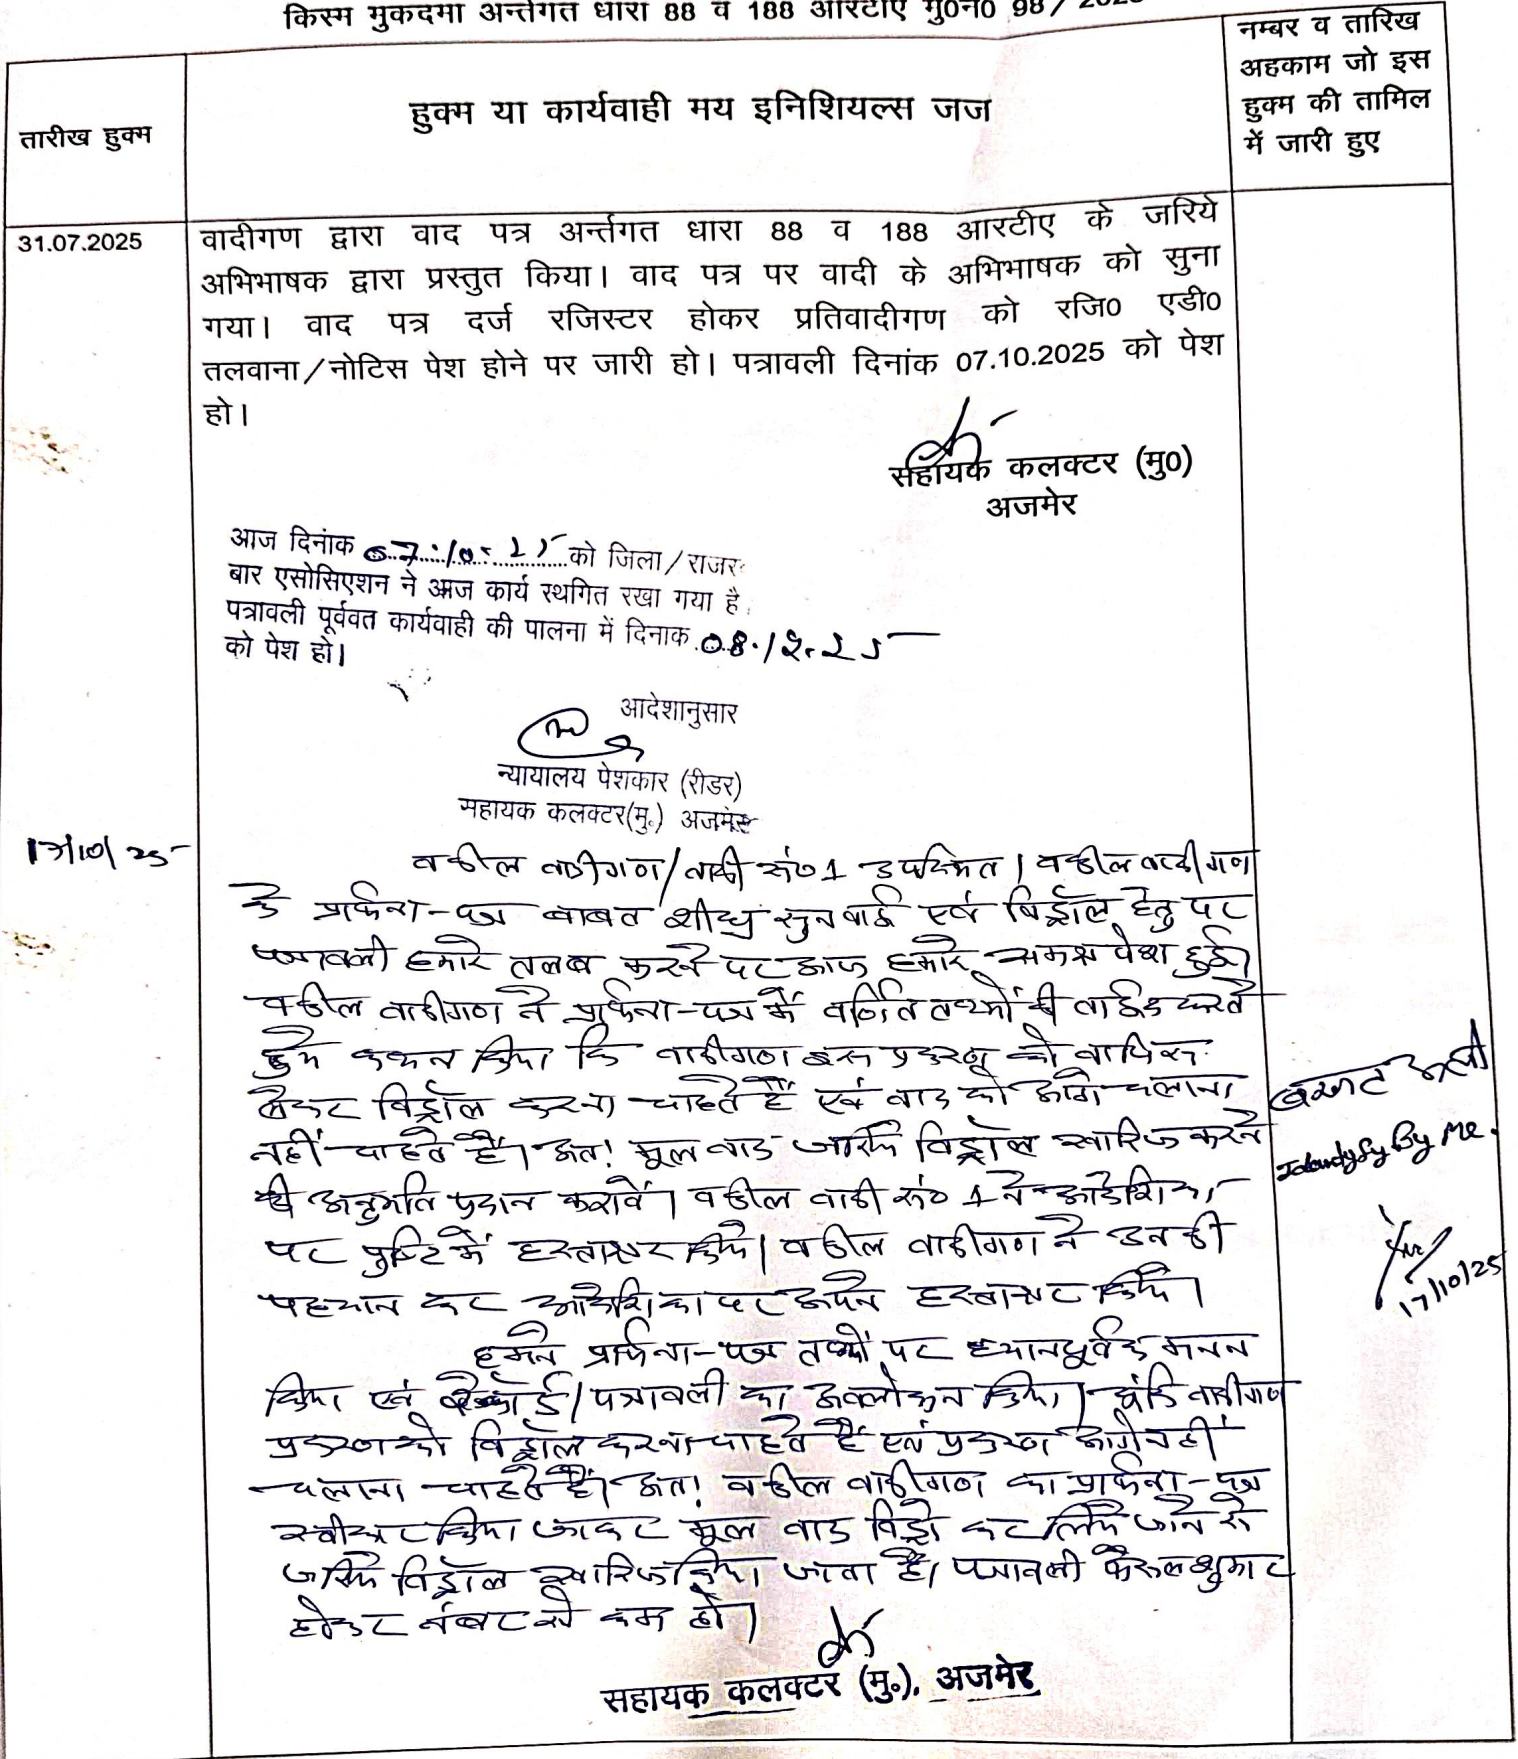 किस्म मुकदमा अर्न्तगत धारा 88 व 188 आरटीए मु0न0 98/
तारीख हुक्म
हुक्म या कार्यवाही मय इनिशियल्स जज
नम्बर व तारिख
अहकाम जो इस
हुक्म की तामिल
में जारी हुए
31.07.2025
वादीगण द्वारा वाद पत्र अर्न्तगत धारा 88 व 188 आरटीए के जरिये
अभिभाषक द्वारा प्रस्तुत किया। वाद पत्र पर वादी के अभिभाषक को सुना
गया। वाद पत्र दर्ज रजिस्टर होकर प्रतिवादीगण को रजि0 एडी0
तलवाना/नोटिस पेश होने पर जारी हो। पत्रावली दिनांक 07.10.2025 को पेश
हो।
सहायक कलक्टर (मु0)
अजमेर
आज दिनांक 07.10.25 को जिला/राजर
बार एसोसिएशन ने आज कार्य स्थगित रखा गया है
पत्रावली पूर्ववत कार्यवाही की पालना में दिनाक 08.12.25
को पेश हो।
आदेशानुसार
न्यायालय पेशकार (रीडर)
सहायक कलक्टर(मु.) अजमेर
17/10/25
वकील वादीगण/वादी सं० 1 उपस्थित। वकील वादीगण
के प्रार्थना-पत्र बाबत शीघ्र सुनवाई एवं विड्रॉल हेतु पर
पत्रावली हमारे तलब करने पर आज हमारे समक्ष पेश हुई।
वकील वादीगण ने प्रार्थना-पत्र में वर्णित तथ्यों की ताईद करते
हुये कथन किया कि वादीगण इस प्रकरण को वापिस
लेकर विड्रॉल करना चाहते हैं एवं वाद को आगे चलाना
नहीं चाहते हैं। अतः मूल वाद जरिये विड्रॉल खारिज करने
की अनुमति प्रदान करावें। वकील वादी सं० 1 ने आदेशिका
पर पुष्टि में हस्ताक्षर किये। वकील वादीगण ने उनकी
पहचान कर आदेशिका पर अपने हस्ताक्षर किये।
Identify By Me.
17/10/25
हमने प्रार्थना-पत्र तथ्यों पर ध्यानपूर्वक मनन
किया एवं रेकॉर्ड/पत्रावली का अवलोकन किया। चूंकि वादीगण
प्रकरण को विड्रॉल करना चाहते हैं एवं प्रकरण आगे नहीं
चलाना चाहते हैं। अतः वकील वादीगण का प्रार्थना-पत्र
स्वीकार किया जाकर मूल वाद विड्रो कर लिये जाने से
जरिये विड्रॉल खारिज किया जाता है। पत्रावली फैसल शुमार
होकर नंबर से कम हो।
सहायक कलक्टर (मु.), अजमेर